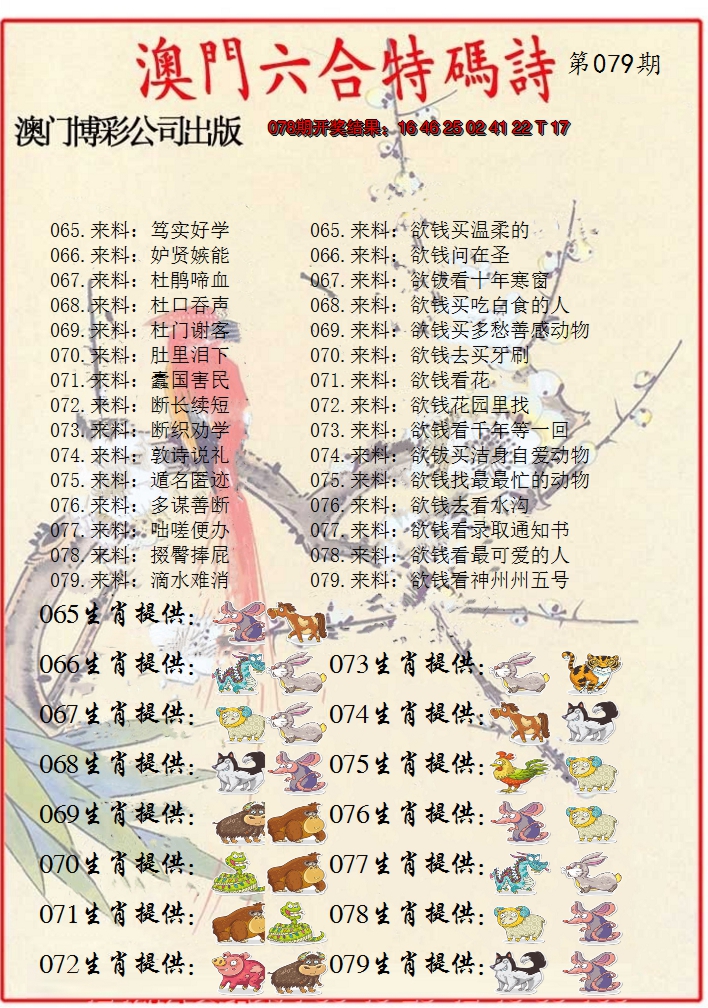 澳門六合特碼詩 第079期
澳门博彩公司出版 078期开奖结果：16 46 25 02 41 22 T 17
065.来料：笃实好学 065.来料：欲钱买温柔的
066.来料：妒贤嫉能 066.来料：欲钱问在圣
067.来料：杜鹃啼血 067.来料：欲钱看十年寒窗
068.来料：杜口吞声 068.来料：欲钱买吃白食的人
069.来料：杜门谢客 069.来料：欲钱买多愁善感动物
070.来料：肚里泪下 070.来料：欲钱去买牙刷
071.来料：蠹国害民 071.来料：欲钱看花
072.来料：断长续短 072.来料：欲钱花园里找
073.来料：断织劝学 073.来料：欲钱看千年等一回
074.来料：敦诗说礼 074.来料：欲钱买洁身自爱动物
075.来料：遁名匿迹 075.来料：欲钱找最最忙的动物
076.来料：多谋善断 076.来料：欲钱去看水沟
077.来料：咄嗟便办 077.来料：欲钱看录取通知书
078.来料：掇臀捧屁 078.来料：欲钱看最可爱的人
079.来料：滴水难消 079.来料：欲钱看神州州五号
065生肖提供：
066生肖提供： 073生肖提供：
067生肖提供： 074生肖提供：
068生肖提供： 075生肖提供：
069生肖提供： 076生肖提供：
070生肖提供： 077生肖提供：
071生肖提供： 078生肖提供：
072生肖提供： 079生肖提供：